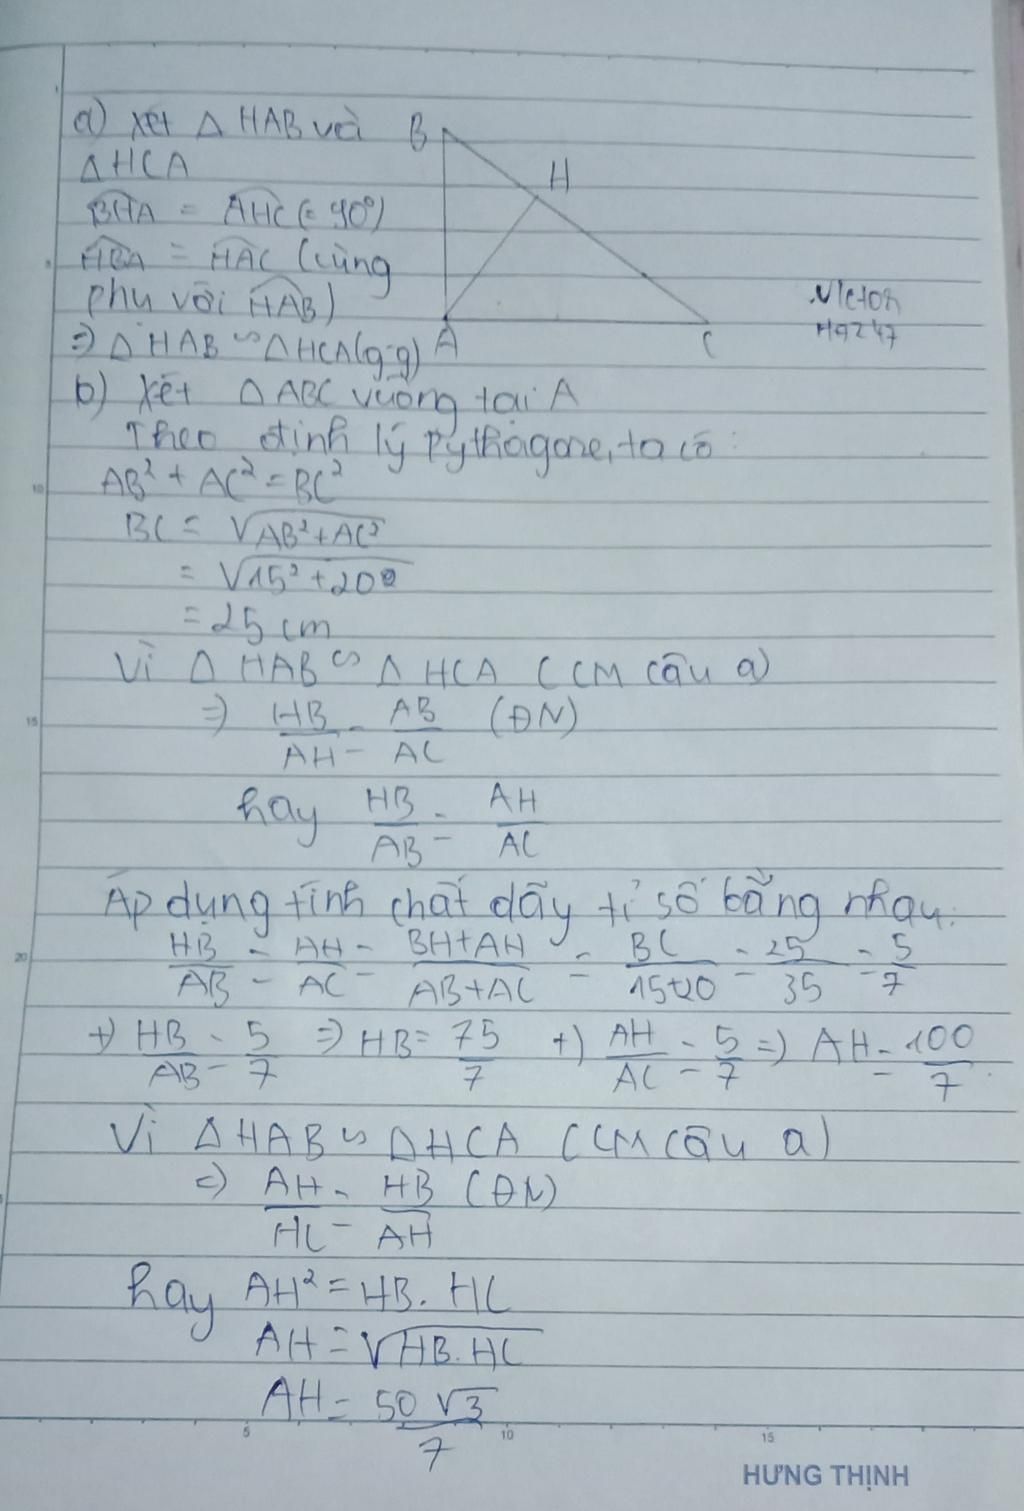 a) Xét △ HAB và
△HCA
BHA = AHC (= 90°)
HBA = HAC (cùng
phụ với HAB)
=> △ HAB ∽ △HCA(g-g)
B
H
A
C
Victor
b) Xét △ ABC vuông tại A
Theo định lý Pythagore, ta có:
AB² + AC² = BC²
BC = √AB²+AC²
= √15²+20²
= 25 cm
Vì △ HAB ∽ △ HCA (CM câu a)
=> HB/AH = AB/AC (ĐN)
hay HB/AB = AH/AC
Áp dụng tính chất dãy tỉ số bằng nhau:
HB/AB = AH/AC = BH+AH/AB+AC = BC/15+20 = 25/35 = 5/7
+) HB/AB = 5/7 => HB = 75/7 +) AH/AC = 5/7 => AH = 100/7
Vì △HAB ∽ △HCA (CM câu a)
=> AH/HC = HB/AH (ĐN)
hay AH² = HB. HC
AH = √HB.HC
AH = 50√3/7
5 10 15
HƯNG THỊNH